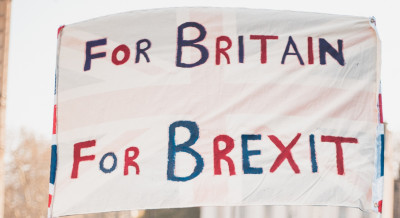 FOR BRITAIN
FOR BREXIT